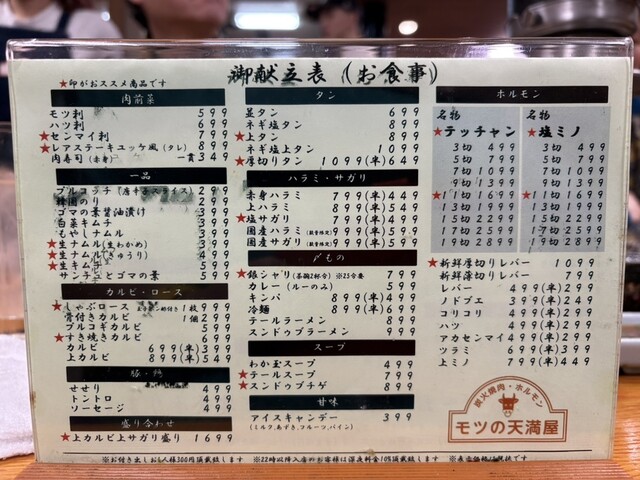 御献立表(お食事)
★印がおススメ商品です
肉前菜
モツ刺 599
ハツ刺 699
★センマイ刺 799
★レアステーキユッケ風(タレ) 899
肉寿司(赤身) 一貫 349
一品
韓国のり 299
ゴマの葉醤油漬け 399
白菜キムチ 399
もやしナムル 399
★生ナムル(生わかめ) 499
★生ナムル(きゅうり) 499
★生キムチ 599
サンチュとゴマの葉 599
カルビ・ロース
★しゃぶロース 1枚 999
骨付きカルビ 1個 299
プルコギカルビ 599
★すき焼きカルビ 699
カルビ 699(半)399
上カルビ 899(半)549
豚・鶏
せせり 499
トントロ 499
ソーセージ 499
盛り合わせ
★上カルビ上サガリ盛り 1699
タン
並タン 699
ネギ塩タン 899
★上タン 899
ネギ塩上タン 1099
★厚切りタン 1099(半)649
ハラミ・サガリ
赤身ハラミ 799(半)449
上ハラミ 899(半)549
★塩サガリ 799(半)499
国産ハラミ (数量限定) 999(半)599
国産サガリ (数量限定) 999(半)599
〆もの
★銀シャリ(茶碗2杯分)※25分要 799
カレー(ルーのみ) 599
キンパ 899(半)499
冷麺 899(半)699
テールラーメン 899
スンドゥブラーメン 999
スープ
わか玉スープ 499
★テールスープ 799
★スンドゥブチゲ 899
甘味
アイスキャンデー 399
(ミルク,あずき,フルーツ,パイン)
ホルモン
名物
★テッチャン
3切 499
5切 799
7切 1099
9切 1399
★11切 1699
13切 1999
15切 2299
17切 2599
19切 2899
名物
★塩ミノ
3切 499
5切 799
7切 1099
9切 1399
★11切 1699
13切 1999
15切 2299
17切 2599
19切 2899
★新鮮厚切りレバー 1099
新鮮薄切りレバー 799
レバー 499(半)299
ノドブエ 399(半)249
コリコリ 499(半)299
ハツ 499(半)299
アカセンマイ 499(半)299
ツラミ 699(半)399
上ミノ 799(半)449
炭火焼肉・ホルモン
モツの天満屋
※お付き出しお1人様300円頂戴致します ※22時以降入店のお客様は深夜料金10%頂戴致します